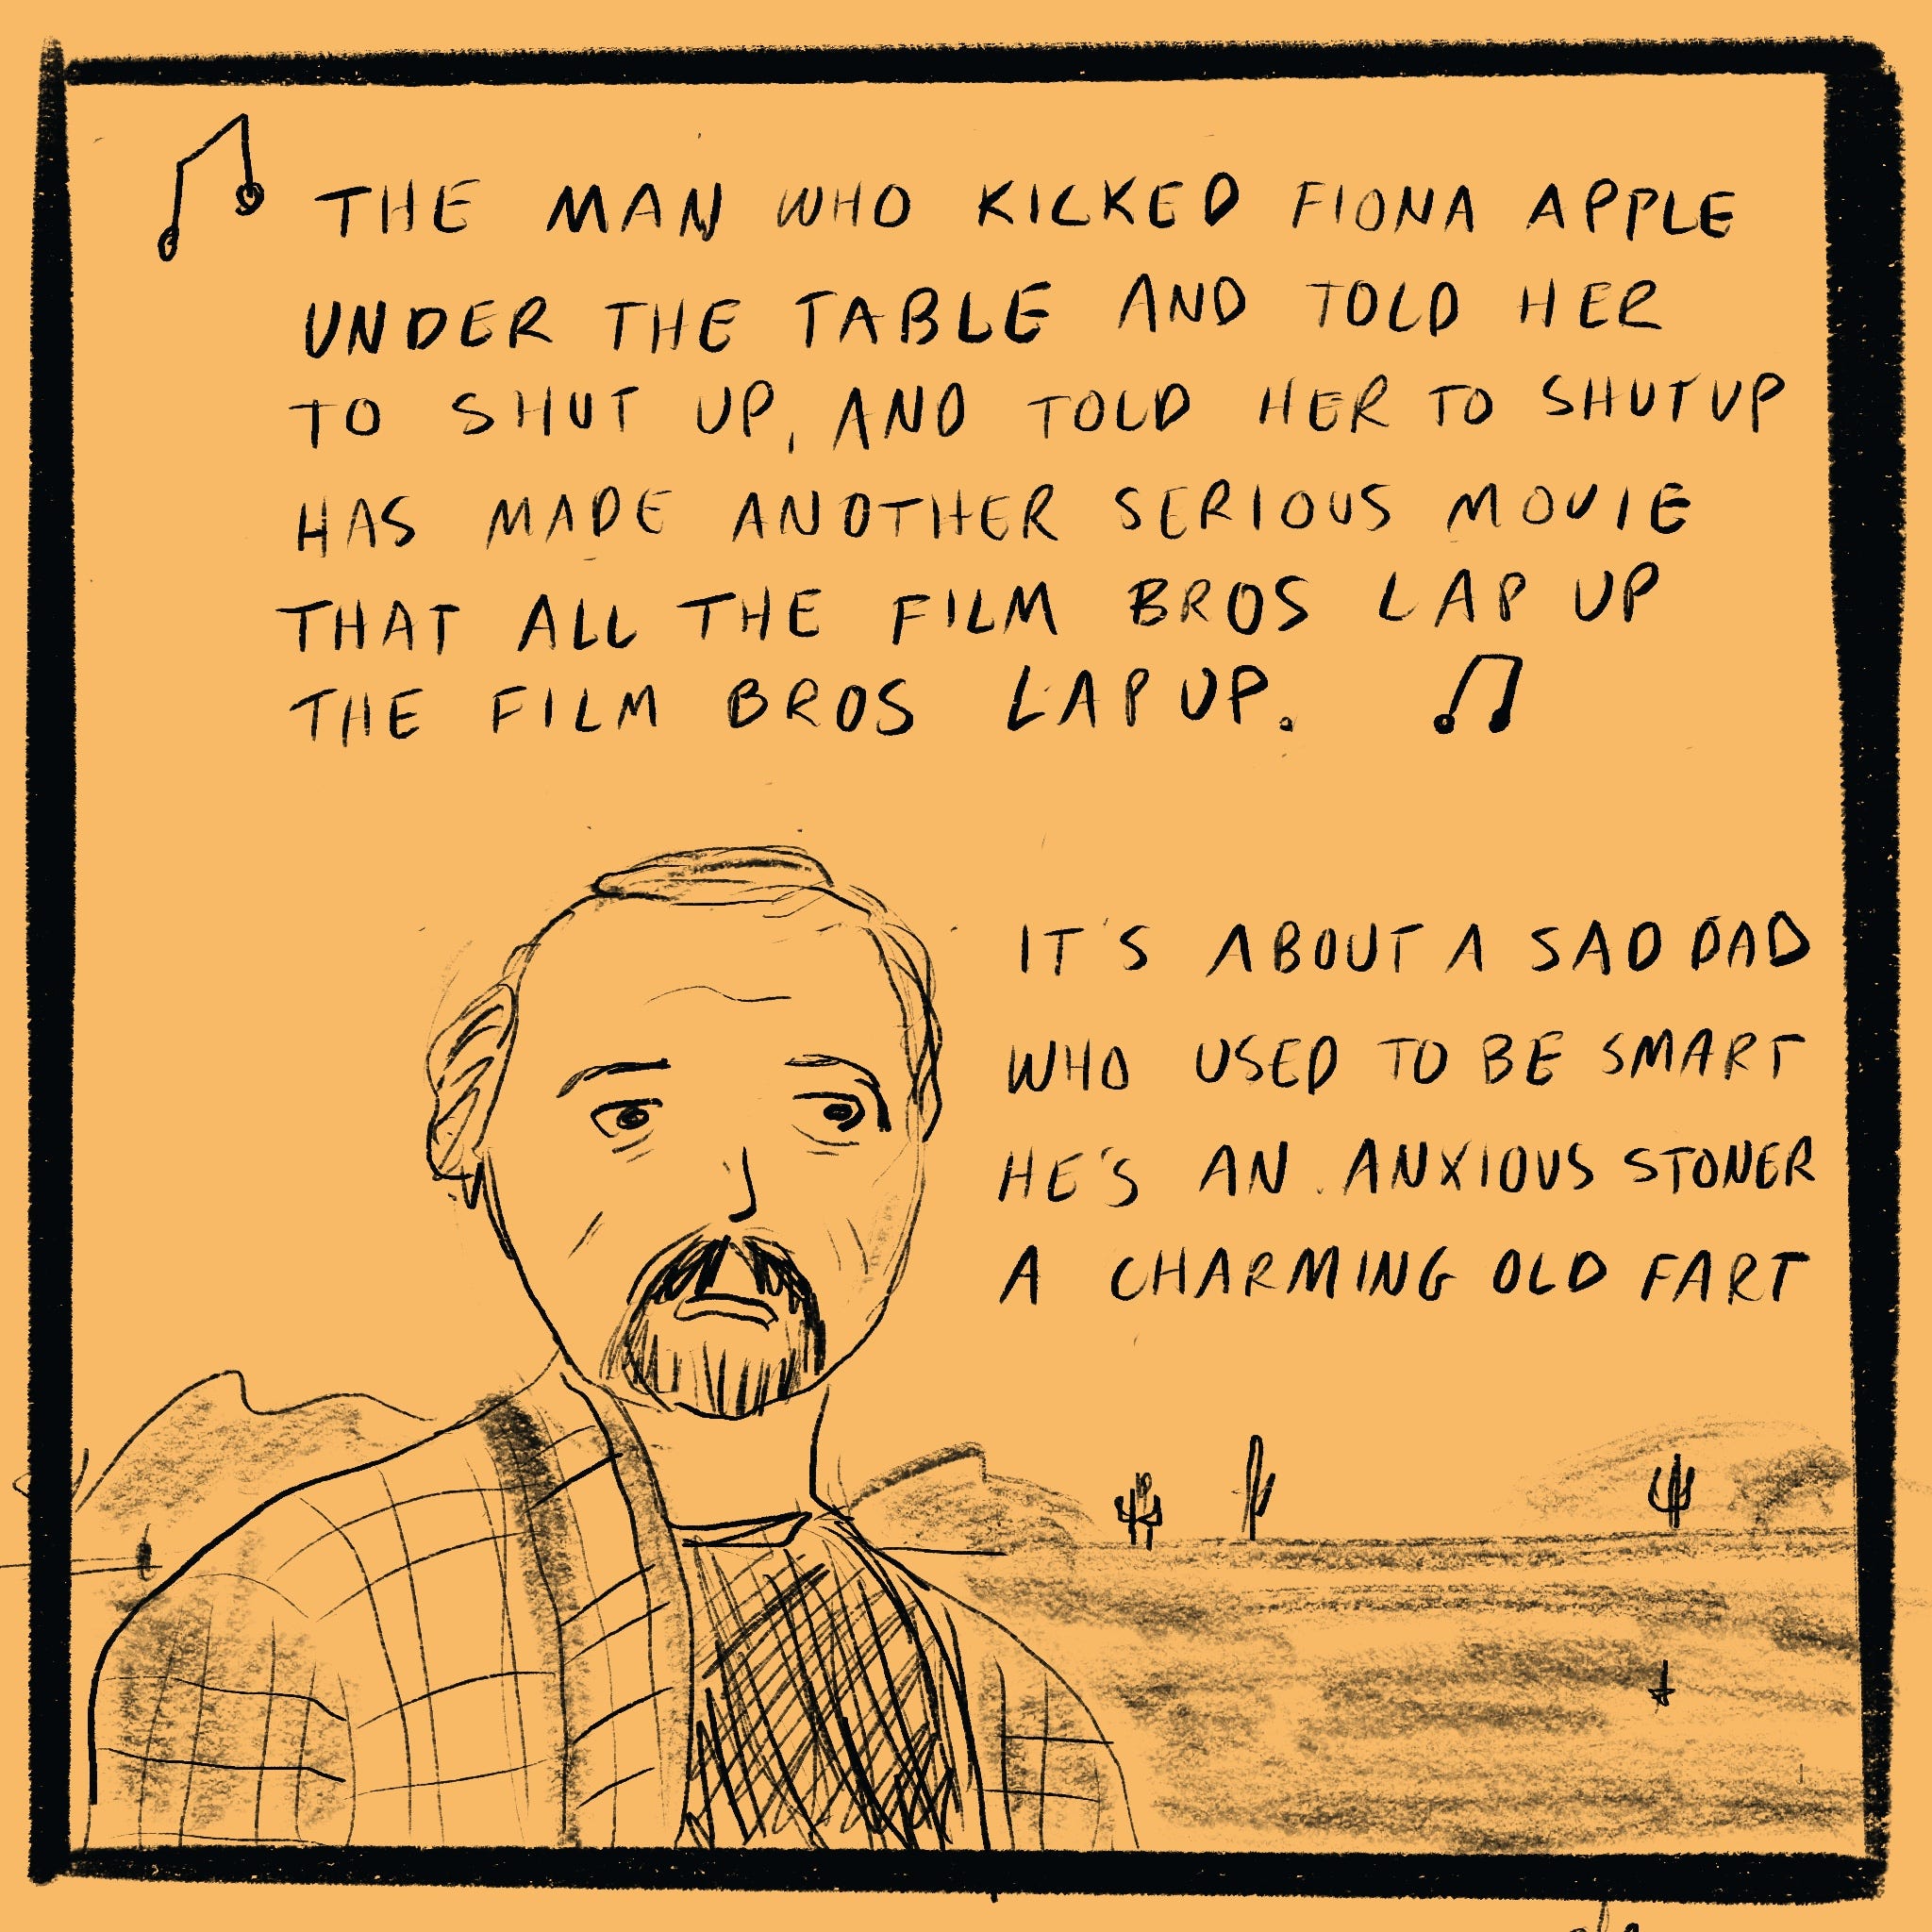 THE MAN WHO KICKED FIONA APPLE
UNDER THE TABLE AND TOLD HER
TO SHUT UP, AND TOLD HER TO SHUT UP
HAS MADE ANOTHER SERIOUS MOVIE
THAT ALL THE FILM BROS LAP UP
THE FILM BROS LAP UP.
IT'S ABOUT A SAD DAD
WHO USED TO BE SMART
HE'S AN ANXIOUS STONER
A CHARMING OLD FART